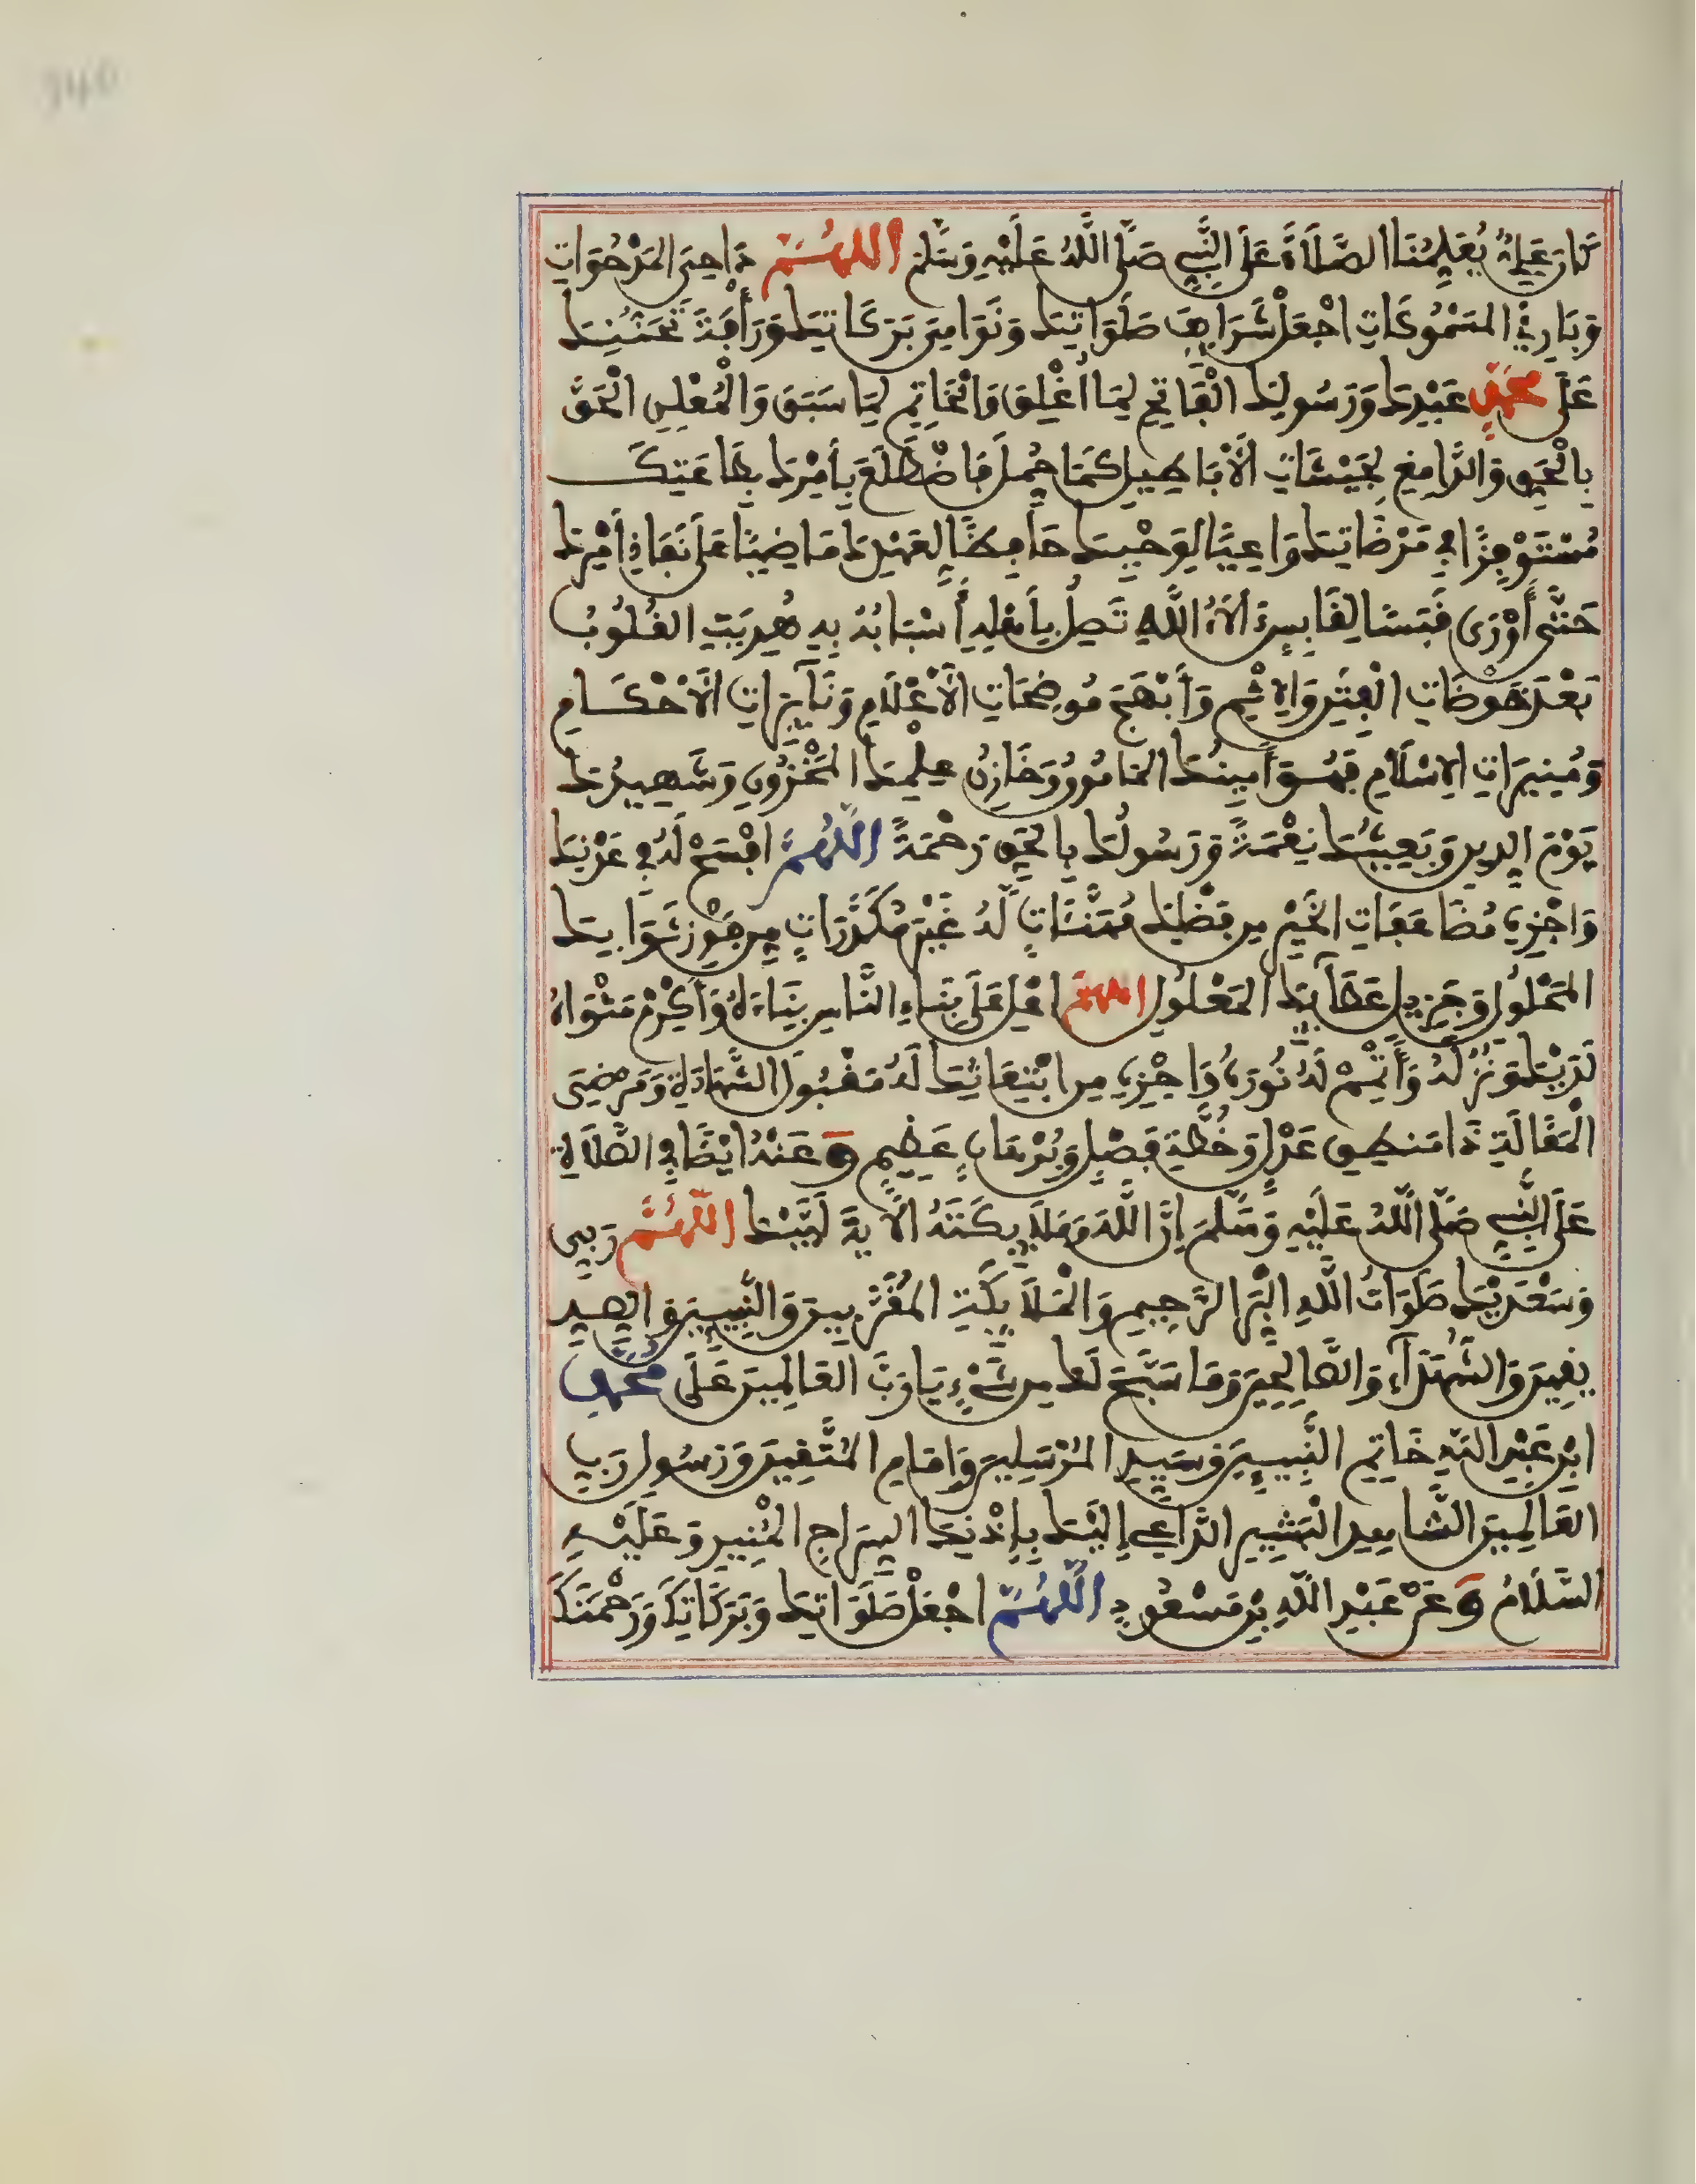 كَانَ عَلِيٌّ يُعَلِّمُنَا الصَّلَاةَ عَلَى النَّبِيِّ صَلَّى اللَّهُ عَلَيْهِ وَسَلَّمَ اللَّهُمَّ دَاحِيَ الْمَدْحُوَّاتِ
وَبَارِئَ الْمَسْمُوكَاتِ اجْعَلْ شَرَايِفَ صَلَوَاتِكَ وَنَوَامِيَ بَرَكَاتِكَ وَرَأْفَةَ تَحَنُّنِكَ
عَلَى مُحَمَّدٍ عَبْدِكَ وَرَسُولِكَ الْفَاتِحِ لِمَا أُغْلِقَ وَالْخَاتِمِ لِمَا سَبَقَ وَالْمُعْلِنِ الْحَقَّ
بِالْحَقِّ وَالدَّامِغِ لِجَيْشَاتِ الْأَبَاطِيلِ كَمَا حُمِّلَ فَاضْطَلَعَ بِأَمْرِكَ بِطَاعَتِكَ
مُسْتَوْفِزًا فِي مَرْضَاتِكَ وَاعِيًا لِوَحْيِكَ حَافِظًا لِعَهْدِكَ مَاضِيًا عَلَى نَفَاذِ أَمْرِكَ
حَتَّى أَوْرَى قَبَسًا لِقَابِسٍ آلَاءُ اللَّهِ تَصِلُ بِأَهْلِهِ أَسْبَابُهُ بِهِ هُدِيَتِ الْقُلُوبُ
بَعْدَ خَوْضَاتِ الْفِتَنِ وَالْإِثْمِ وَأَبْهَجَ مُوضِحَاتِ الْأَعْلَامِ وَنَآيِرَاتِ الْأَحْكَامِ
وَمُنِيرَاتِ الْإِسْلَامِ فَهُوَ أَمِينُكَ الْمَامُونُ وَخَازِنُ عِلْمِكَ الْمَخْزُونِ وَشَهِيدُكَ
يَوْمَ الدِّينِ وَبَعِيثُكَ نِعْمَةً وَرَسُولُكَ بِالْحَقِّ رَحْمَةً اللَّهُمَّ افْسَحْ لَهُ فِي عَدْنِكَ
وَاجْزِهِ مُضَاعَفَاتِ الْخَيْرِ مِن فَضْلِكَ مُهَنَّئَاتٍ لَهُ غَيْرَ مُكَدَّرَاتٍ مِن فَوْزِ ثَوَابِكَ
الْمَحْلُولِ وَجَزِيلِ عَطَآئِكَ الْمَعْلُولِ اللَّهُمَّ اعْلِ عَلَى بِنَاءِ النَّاسِ بِنَاءَهُ وَأَكْرِمْ مَثْوَاهُ
لَدَيْكَ وَنُزُلَهُ وَأَتْمِمْ لَهُ نُورَهُ وَاجْزِهِ مِن ابْتِعَاثِكَ لَهُ مَقْبُولَ الشَّهَادَةِ وَمَرْضِيَّ
الْمَقَالَةِ ذَا مَنطِقٍ عَدْلٍ وَخُطَّةٍ فَصْلٍ وَبُرْهَانٍ عَظِيمٍ وَعَنْهُ أَيْضًا فِي الصَّلَاةِ
عَلَى النَّبِيِّ صَلَّى اللَّهُ عَلَيْهِ وَسَلَّمَ إِنَّ اللَّهَ وَمَلَايِكَتَهُ الْآيَةَ لَبَّيْكَ اللَّهُمَّ رَبِّي
وَسَعْدَيْكَ صَلَوَاتُ اللَّهِ الْبَرِّ الرَّحِيمِ وَالْمَلَايِكَةِ الْمُقَرَّبِينَ وَالنَّبِيِّينَ وَالصِّدِّ
يقِينَ وَالشُّهَدَآءِ وَالصَّالِحِينَ وَمَا سَبَّحَ لَكَ مِن شَيْءٍ يَا رَبَّ الْعَالَمِينَ عَلَى مُحَمَّدِ
ابْنِ عَبْدِ اللَّهِ خَاتِمِ النَّبِيِّينَ وَسَيِّدِ الْمُرْسَلِينَ وَإِمَامِ الْمُتَّقِينَ وَرَسُولِ رَبِّ
الْعَالَمِينَ الشَّاهِدِ الْبَشِيرِ الدَّاعِي إِلَيْكَ بِإِذْنِكَ السِّرَاجِ الْمُنِيرِ وَعَلَيْهِ
السَّلَامُ وَعَنْ عَبْدِ اللَّهِ بْنِ مَسْعُودٍ اللَّهُمَّ اجْعَلْ صَلَوَاتِكَ وَبَرَكَاتِكَ وَرَحْمَتَكَ